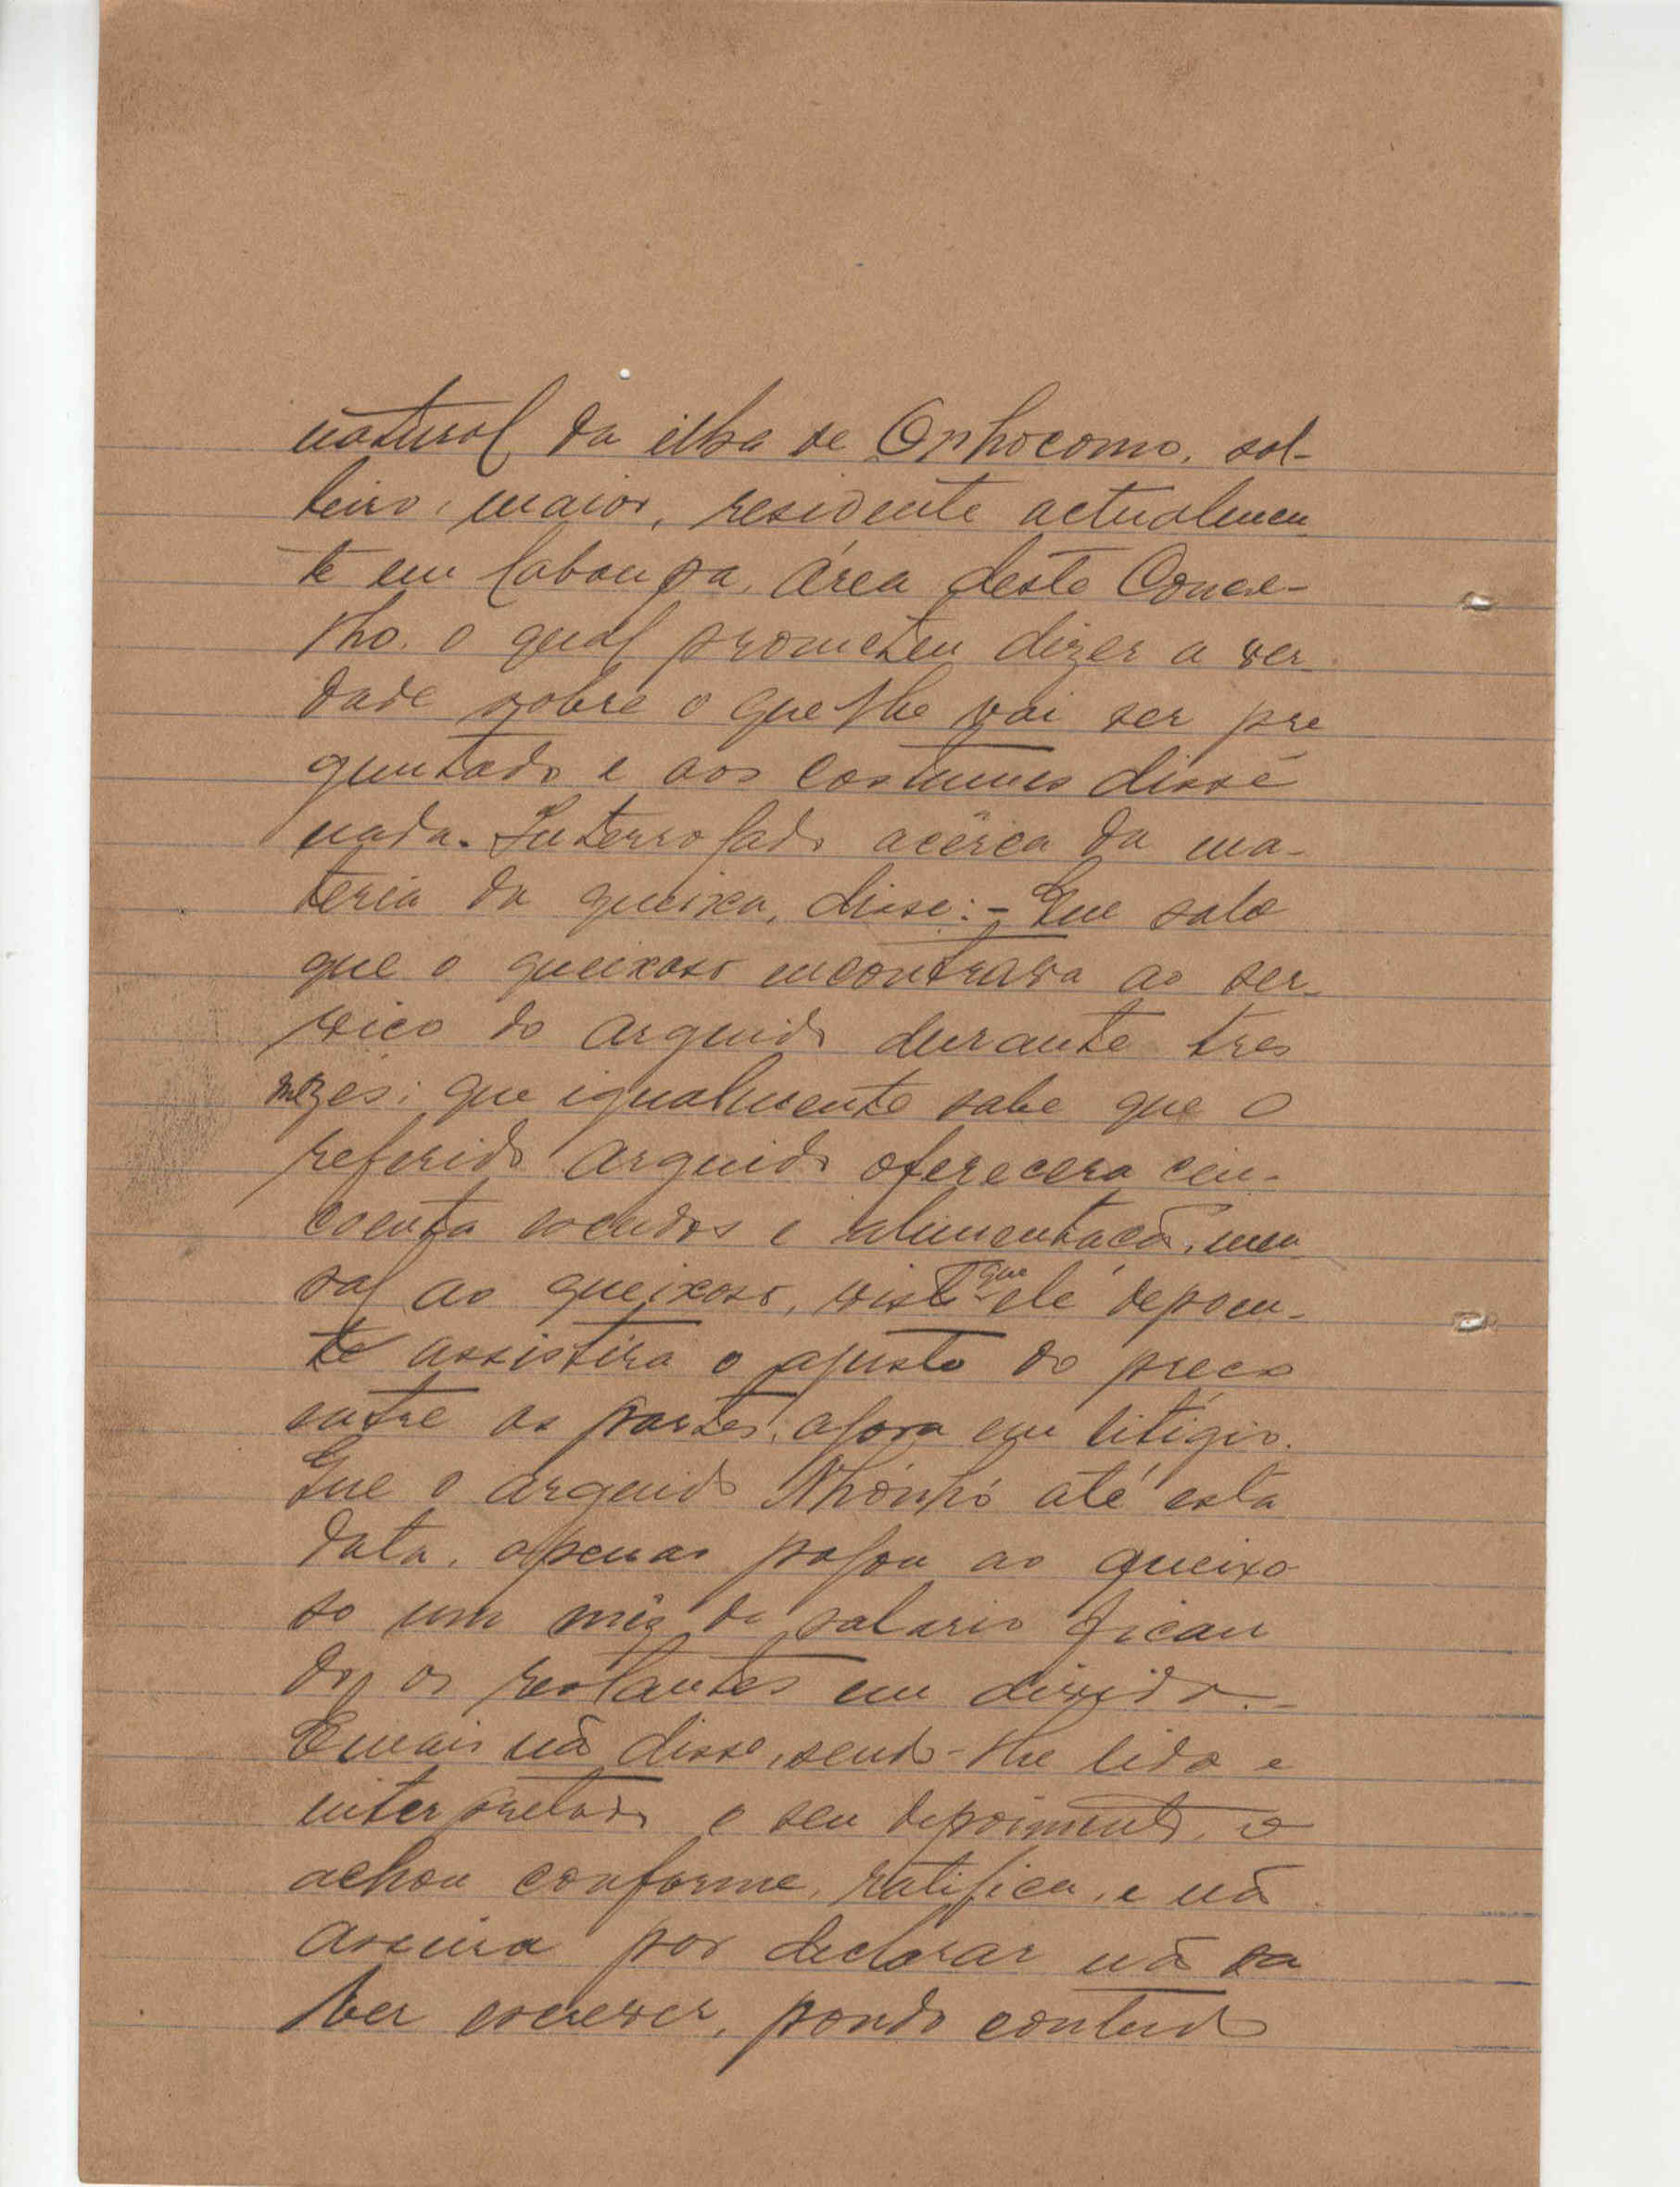 natural da ilha de Onhocomo, sol-
teiro, maior, residente actualmen
te em Cabanpa, área deste Conce-
lho, o qual prometeu dizer a ver
dade sobre o que lhe vai ser pre
guntado e aos costumes disse
nada. Interrogado acêrca da ma-
teria da queixa, disse:- Que sabe
que o queixoso encontrava ao ser-
viço do arguido durante tres
mezes; que igualmente sabe que o
referido arguido oferecera cin-
coenta escudos e alimentacã, men
sal ao queixoso, visto que ele depoen-
te assistira o ajusto do preço
entre as partes, agora em litigio.
Que o arguido Nhónhó até esta
data, apenas pagou ao queixo
so um mês de salario fican
do, os restantes em divida.-
E mais nã disse, sendo-lhe lido e
interpretado o seu depoimento, o
achou conforme, ratifica, e nã
assina por declarar nã sa
ber escrever, pondo contudo